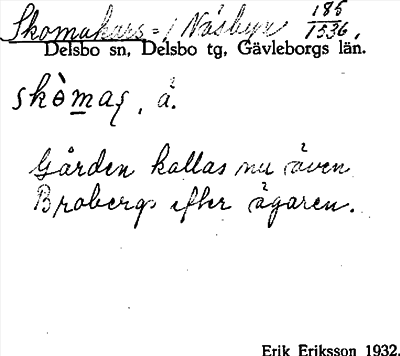 Skomakars = / Näsbyn 185/1536.
Delsbo sn, Delsbo tg, Gävleborgs län.
skòmas, å.
Gården kallas nu även
Brobergs efter ägaren.
Erik Eriksson 1932.